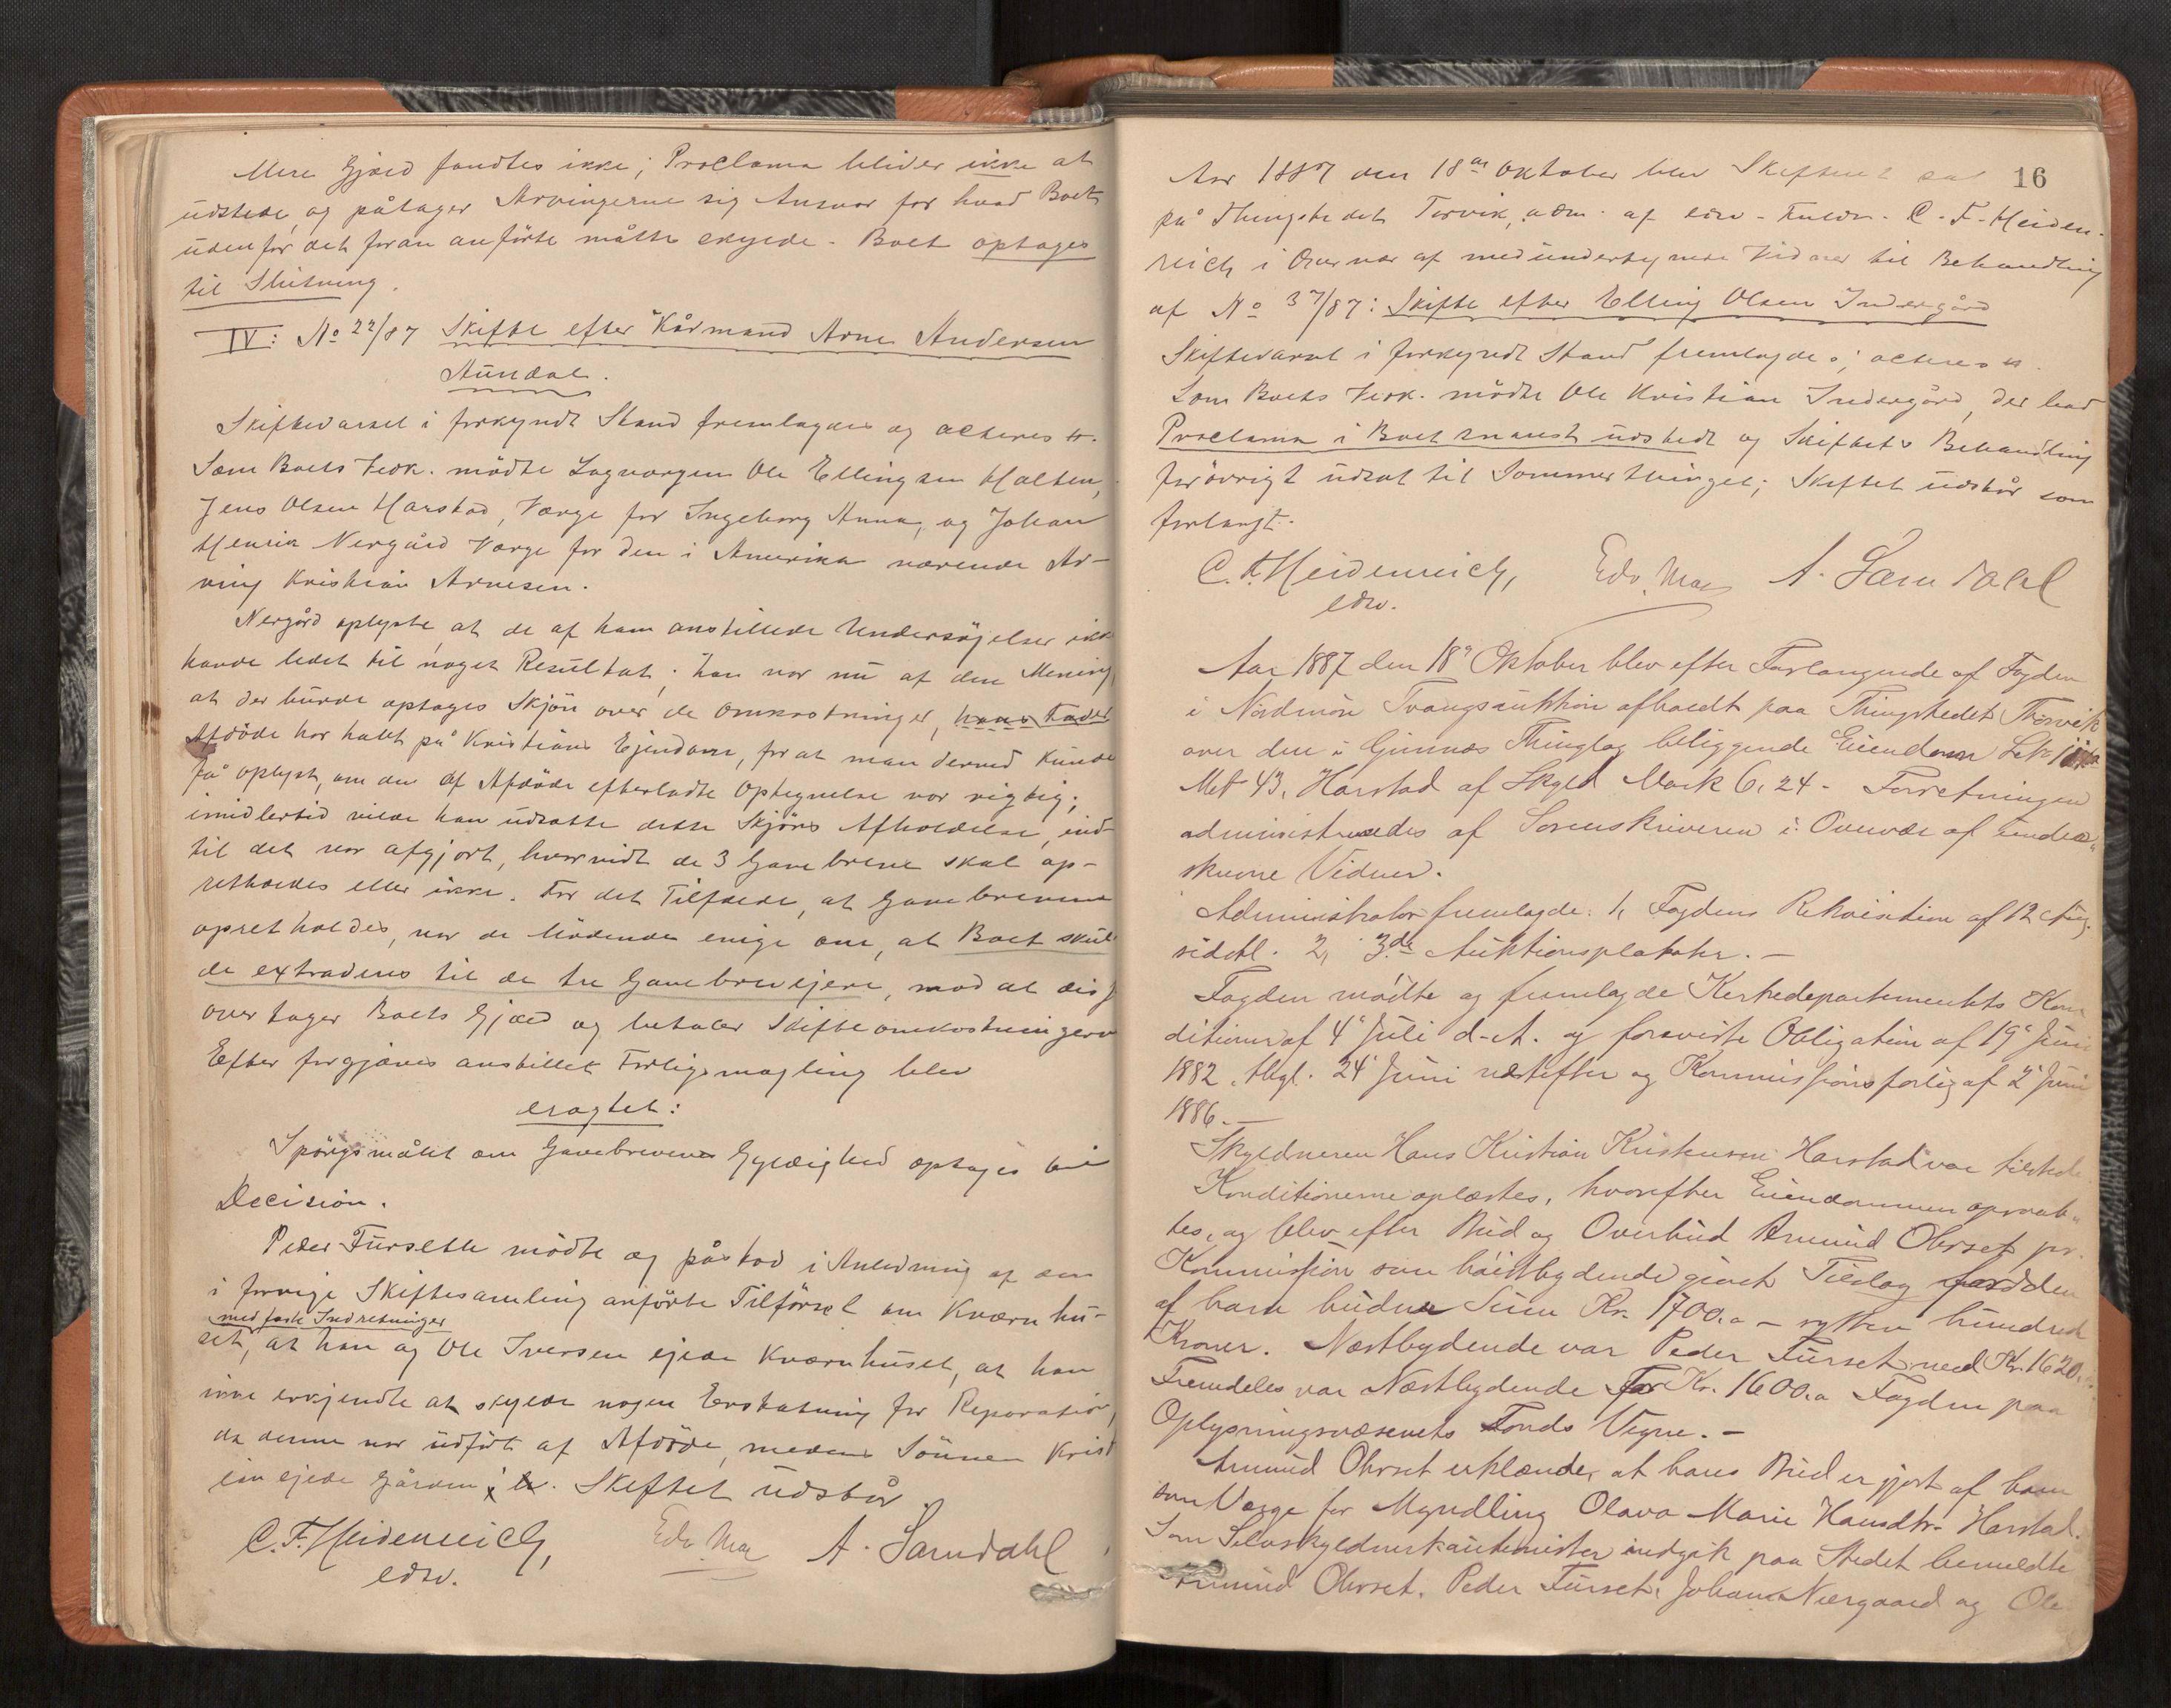 Mere Gjæld fandtes ikke; Proclama bliver ikke at
udstede, og påtager Arvingerne sig Ansvar for hvad Boet
udenfor det foran anførte måtte skylde. Boet optages
til Slutning.
IV: No 22/87 Skifte efter Kårmand Arne Andersen
Aundal.
Skiftevarsel i forkyndt Stand fremlagdes og acteres
Som Boets Vedk. mödte Lagvergen Ole Ellingsen Halten,
Jens Olsen Harstad, Værge for Ingeborg Anna, og Johan
Henrik Nergård Værge for den i Amerika værende Ar-
ving Kristian Arnesen.
Nergård oplyste, at de af ham anstillede Undersøjelser ikke
havde ledet til noget Resultat; han var nu af den Mening
at der burde optages Skjön over de Omkostninger, hans Fader
Afdöde har havt på Kristians Ejendom, for at man derved kunde
få oplyst, om den af Afdöde efterladte Optegnelse var rigtig;
imidlertid vilde han udsætte dette Skjöns Afholdelse, ind-
til det var afgjort, hvorvidt de 3 Gavebreve skal op-
retholdes eller ikke. For det Tilfælde, at Gavebrevene
opretholdes, var de Mödende enige om, at Boet skul-
de extraderes til de tre Gavebrevejere, mod at disse
overtager Boets Gjæld og betaler Skifteomkostningerne
Efter forgjæves anstillet Forligsmægling blev
eragtet:
Spörgsmålet om Gavebrevenes Gyldighed optages til
Decision.
Peder Furseth mödte og påstod i Anledning af den
i forrige Skiftesamling anförte Tilförsel om Kværnhu-
med faste Indretninger
set, at han og Ole Iversen ejede Kværnhuset, at han
ikke erkjendte at skylde nogen Erstatning for Reparation,
da denne var udfört af Afdöde, medens Sönnen Krist
ian ejede Gården; Skiftet udstår
C. F. Heidenreich, Edv. Moe A. Sarndahl
edsv.
16
Aar 1887 den 18de Oktober blev Skifteret sat
på Thingstedet Torvik, adm. af edsv. Fuldm. C. F. Heiden-
reich i Overvær af medundertegnede Vidner til Behandling
af No 37/87: Skifte efter Elling Olsen Indergård
Skiftevarsel i forkyndt Stand fremlagdes; acteres
Som Boets Vedk. mödte Ole Kristian Indergård, der bad
Proclama i Boet snarest udstedt og Skiftets Behandling
forövrigt udsat til Sommerthinget; Skiftet udstår som
forlangt.
C. F. Heidenreich, Edv. Moe A. Sarndahl
edsv.
Aar 1887 den 18de Oktober blev efter Forlangende af Fogden
i Nordmör Tvangsauktion afholdt paa Thingstedet Thorvik
over den i Gimnæs Thinglag beliggende Eiendom
Met 43, Harstad af Skyld Mark 6,24. Forretningen
administreredes af Sorenskriveren i Overvær af under-
skrevne Vidner.
Administrator fremlagde: 1, Fogdens Rekvisition af 12 Aug.
sidstl. 2, 3de Auktionsplakater. -
Fogden mödte og fremlagde Kirkedepartementets Kon
ditioner af 4de Juli d. A. og foreviste Obligation af 19de Juni
1882, thgl. 24de Juni næstefter og Kommissionsforlig af 2den Juni
1886. -
Skyldneren Hans Kristian Kristensen Harstad var tilstede.
Konditionerne oplæstes, hvorefter Eiendommen opraab-
tes, og blev efter Bud og Overbud Amund Ohrset pr.
Kommission som höistbydende givet Tilslag for den
af ham budne Sum Kr. 1700.- sytten hundrede
Kroner. Næstbydende var Peder Furset med Kr. 1620.
Fremdeles var Næstbydende for Kr. 1600.- Fogden paa
Oplysningsvæsenets Fonds Vegne. -
Amund Ohrset erklærede, at hans Bud er gjort af ham
som Værge for Myndling Olava Marie Hansdtr. Harstad.
Som Selvskyldnerkautionister indgik paa Stedet bemeldte
Amund Ohrset, Peder Furset, Johan Nergaard og Ole